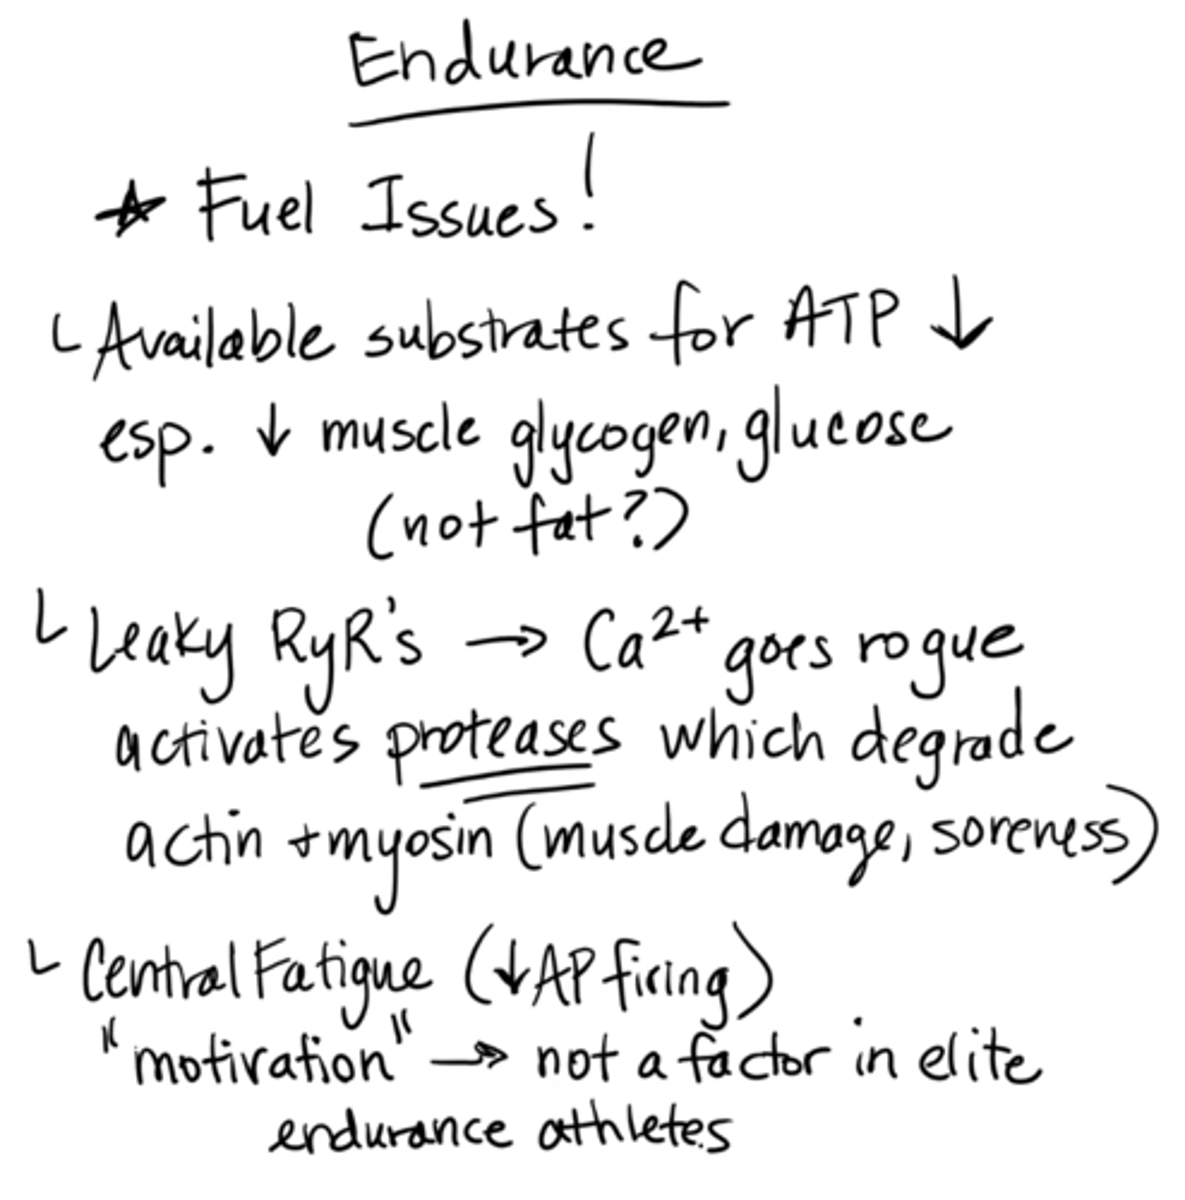 Endurance
★ Fuel Issues!
└ Available substrates for ATP ↓
esp. ↓ muscle glycogen, glucose
(not fat?)
└ Leaky RyR's → Ca²⁺ goes rogue
activates proteases which degrade
actin + myosin (muscle damage, soreness)
└ Central Fatigue (↓ AP firing)
"motivation" → not a factor in elite
endurance athletes